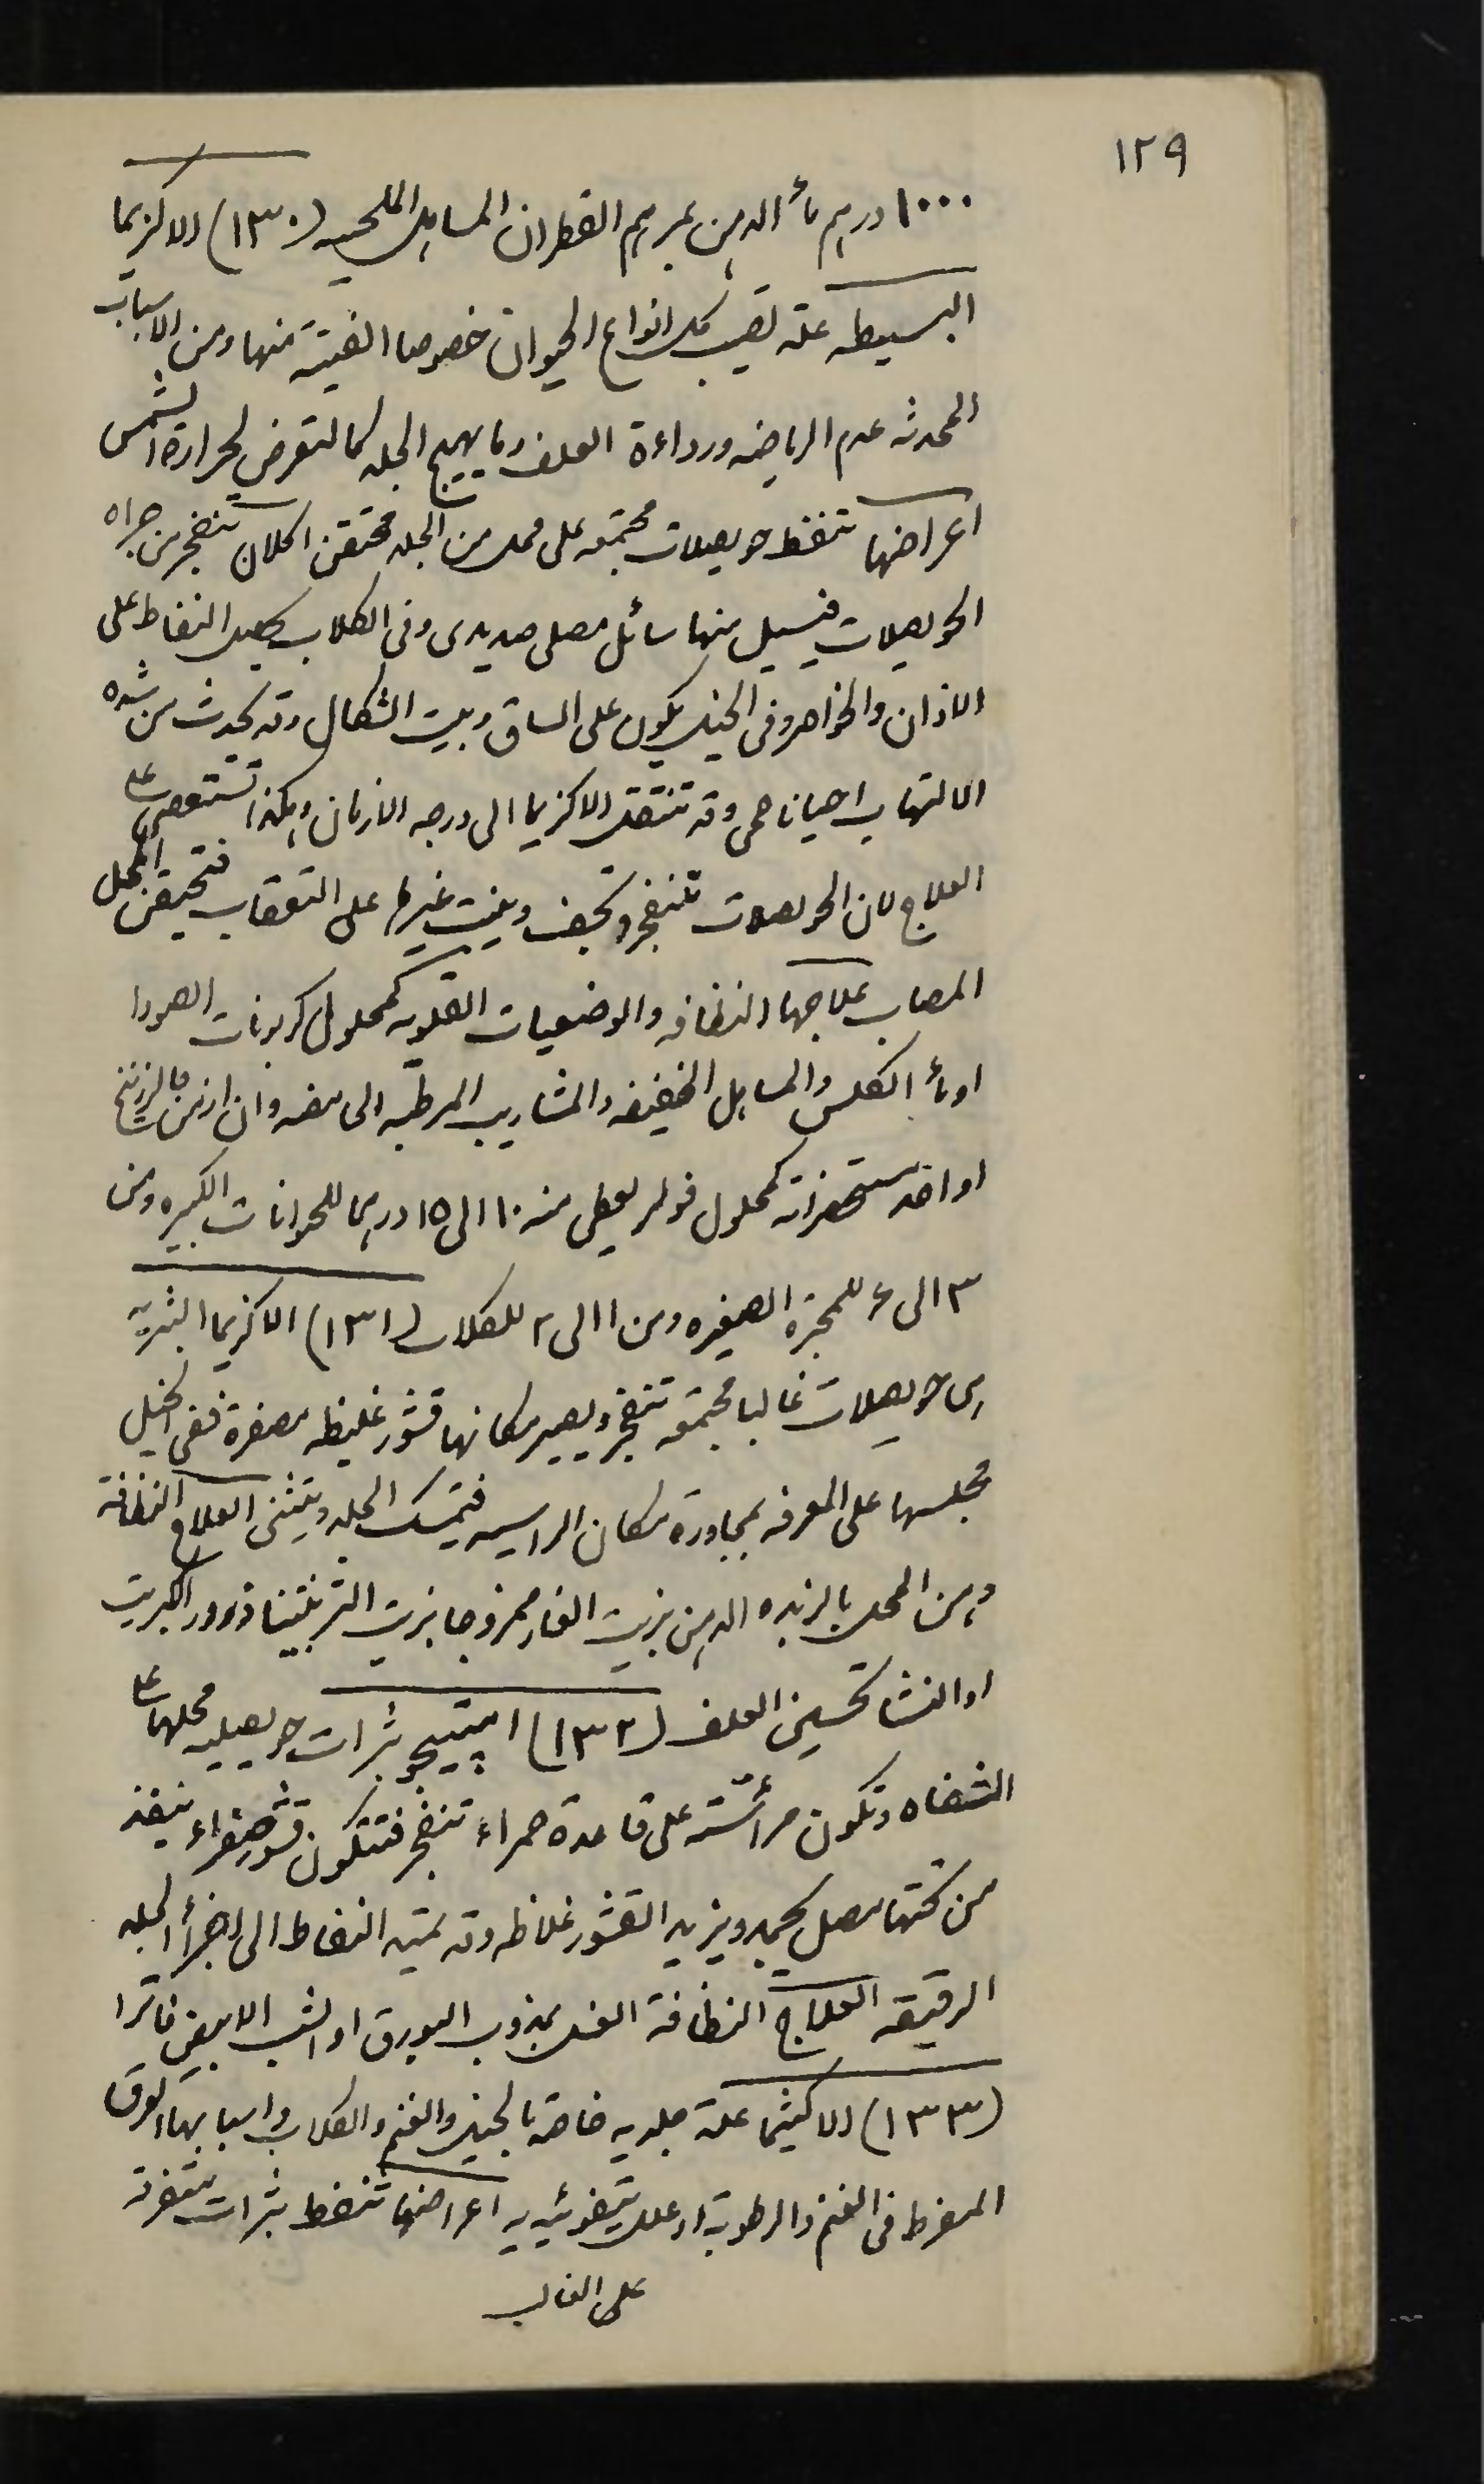 ١٢٩
١٠٠٠ درهم مأ الدهن بمرهم القطران المساهل الملحيه (١٣٠) الاكزيما
البسيطه علة تصيب كل انواع الحيوان خصوصا الفتية منها ومن الاسباب
المحدثه عدم الرياضه ورداءة العلف وما يهيج الجلد كالتعرض لحرارة الشمس
اعراضها تنفط حويصلات مجتمعه على محل من الجلد محتقن اكلان تنفجر من جراه
الحويصلات فيسيل منها سائل مصلى صديدى وفى الكلاب يحصل النفاط على
الاذان والخواصر وفى الخيل يكون على الساق وبيت الشكال وقد يحدث من شده
الالتهاب احيانا حمى وقد تنتقل الاكزيما الى درجه الازمان وهكذا تستعصى على
العلاج لان الحويصلات تنفجر وتجف وينبت غيرها على التعقاب فتحيقن المحل
المصاب علاجها النظافه والوضعيات القلويه كمحلول كربونات الصودا
اومأ الكلس والمساهل الخفيفه والمشاريب المرطبه الى سفه وان ازمن فالزرنيخ
او احد مستحضراته كمحلول فولر يعطى منه ١٠ الى ١٥ درهما للحيوانات الكبيره ومن
٣ الى ٤ للمجتره الصغيره ومن ١ الى ٢ للكلاب (١٣١) الاكزيما البثريه
هى حويصلات غالبا مجتمعه تنفجر ويصير مكانها قشور غليظه مصفرة ففى الخيل
مجلسها على المعرفه بمجاورة مكان الراسيه فيتمسك الجلد ويتثنى العلاج النظافة
دهن المحل بالزبده الدهن بزيت الغار ممزوجا بزيت التربنتينا ذرور الكبريت
او النشا تحسين العلف (١٣٢) امپتيجو بثرات حويصليه محلها على
الشفاه وتكون مرأسّة على قاعدة حمراء تنفجر فتتكون قشور صفراء ينفذ
من تحتها مصل يجمد ويزيد القشور غلاظه وقد يمتد النفاط الى اجزأ الجلد
الرقيقه العلاج النظافة الغسل بمذوب البورق او الشب الابيض فاترا
(١٣٣) الاكثيما علة جلديه خاصة بالخيل والغنم والكلاب واسبابها العرق
المفرط فى الغنم والرطوبة او علل تيفوئيديه اعراضها تنفط بثرات متفرقة
على الغالب